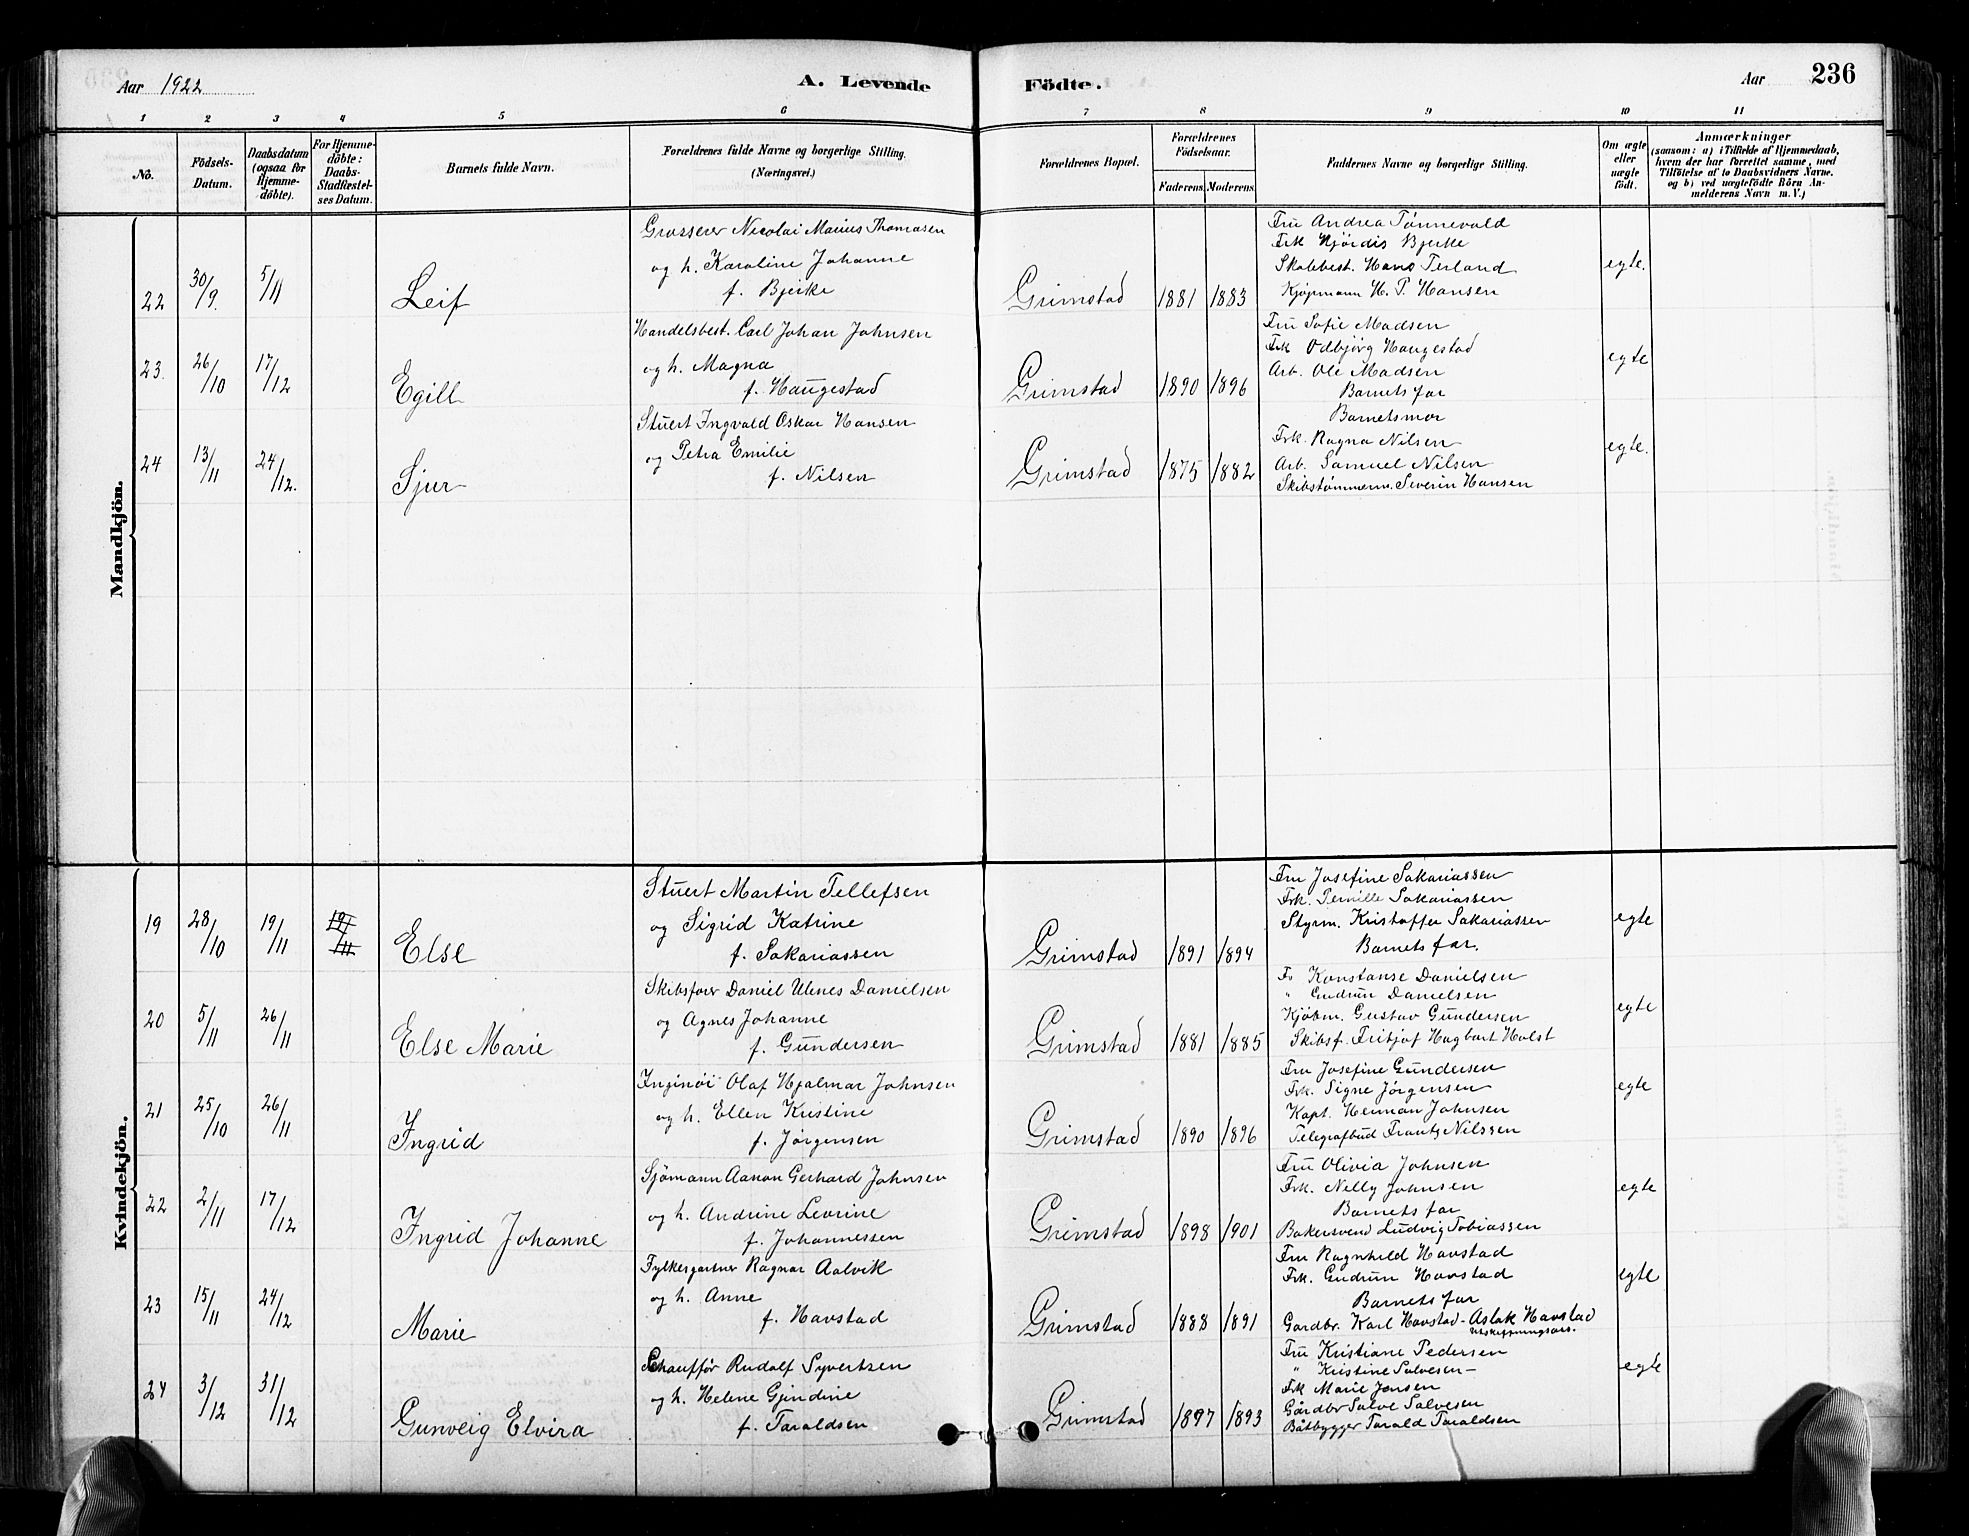 Aar 1922
A. Levende
Födte.
Aar
236
1 2 3 4 5 6 7 8 9 10 11
No.
Födsels-Datum.
Daabsdatum (ogsaa for Hjemme-döbte).
For Hjemme-döbte: Daabs-Stadfæstel-ses Datum.
Barnets fulde Navn.
Forældrenes fulde Navne og borgerlige Stilling.
(Næringsvei.)
Forældrenes Bopæl.
Forældrenes Födselsaar.
Faderens. Moderens.
Faddernes Navne og borgerlige Stilling.
Om ægte eller uægte födt.
Anmærkninger
(saasom: a) i Tilfælde af Hjemmedaab,
hvem der har forrettet samme, med
Tilföielse af to Daabsvidners Navne.
og b) ved uægtefödte Börn An-
melderens Navn m. V.)
Mandkjön.
22
30/9.
5/11
Leif
Grosserer Nicolai Marius Thomasen
og h. Karoline Johanne
f. Bjerke
Grimstad
1881
1883
Fru Andrea Tønnevold
Frk Hjørdis Bjerke
Skolebest. Hans Terland
Kjøpmann H. P. Hansen
egte.
23.
26/10
17/12
Egill
Handelsbest. Carl Johan Johnsen
og h. Magna
f. Haugestad
Grimstad
1890
1896
Fru Sofie Madsen
Frk Odbjørg Haugestad
Arb. Ole Madsen
Barnets far
egte
24
13/11
24/12.
Sjur
Stuert Ingvald Oskar Hansen
og Petra Emilie
f. Nilsen
Grimstad
1875
1882
Barnetsmor
Frk. Ragna Nilsen
Arb. Samuel Nilsen
Skibstømmerm. Severin Hansen
egte.
Kvindekjön.
19
28/10
19/11
19/11
Else
Stuert Martin Tellefsen
og Sigrid Katrine
f. Sakariassen
Grimstad
1891
1894
Fru Josefine Sakariassen
Frk. Pernille Sakariassen
Styrm. Kristoffer Sakariassen
Barnets far.
egte
20
5/11
26/11
Else Marie
Skibsfører Daniel Ulenes Danielsen
og Agnes Johanne
f. Gundersen
Grimstad
1881
1885
Fr Konstanse Danielsen
" Gudrun Danielsen
Kjøbm. Gustav Gundersen
Skibsf. Fritjof Hagbart Holst
egte
21
25/10
26/11
Ingrid
Inginøi Olaf Hjalmar Johnsen
og h. Ellen Kristine
f. Jørgensen
Grimstad
1890
1896
Fru Josefine Gundersen
Frk. Signe Jørgensen
Kapt. Herman Johnsen
Telegrafbud Frantz Nilssen
egte
22
2/11
17/12
Ingrid Johanne
Sjømann Aanon Gerhard Johnsen
og h. Andrine Levrine
f. Johannessen
Grimstad
1898
1901
Fru Olivia Johnsen
Frk. Nelly Johnsen
Barnets far
Bakersvend Ludvig Tobiassen
egte
23
15/11
24/12
Marie
Fylkesgartner Ragnar Aalvik
og h. Anne
f. Havstad
Grimstad
1888
1891
Fru Ragnhild Havstad
Frk. Gudrun Havstad
Barnets far
Gardbr. Karl Havstad - Aslak Havstad
egte
24
3/12
31/12
Gunveig Elvira
Schauffør Rudolf Syvertsen
og h. Helene Gjindine
f. Taraldsen
Grimstad
1897
1893
Fru Kristiane Pedersen
" Kristine Salvesen -
Frk Marie Jensen
Gårdbr Salve Salvesen
Båtbygger Tarald Taraldsen
egte